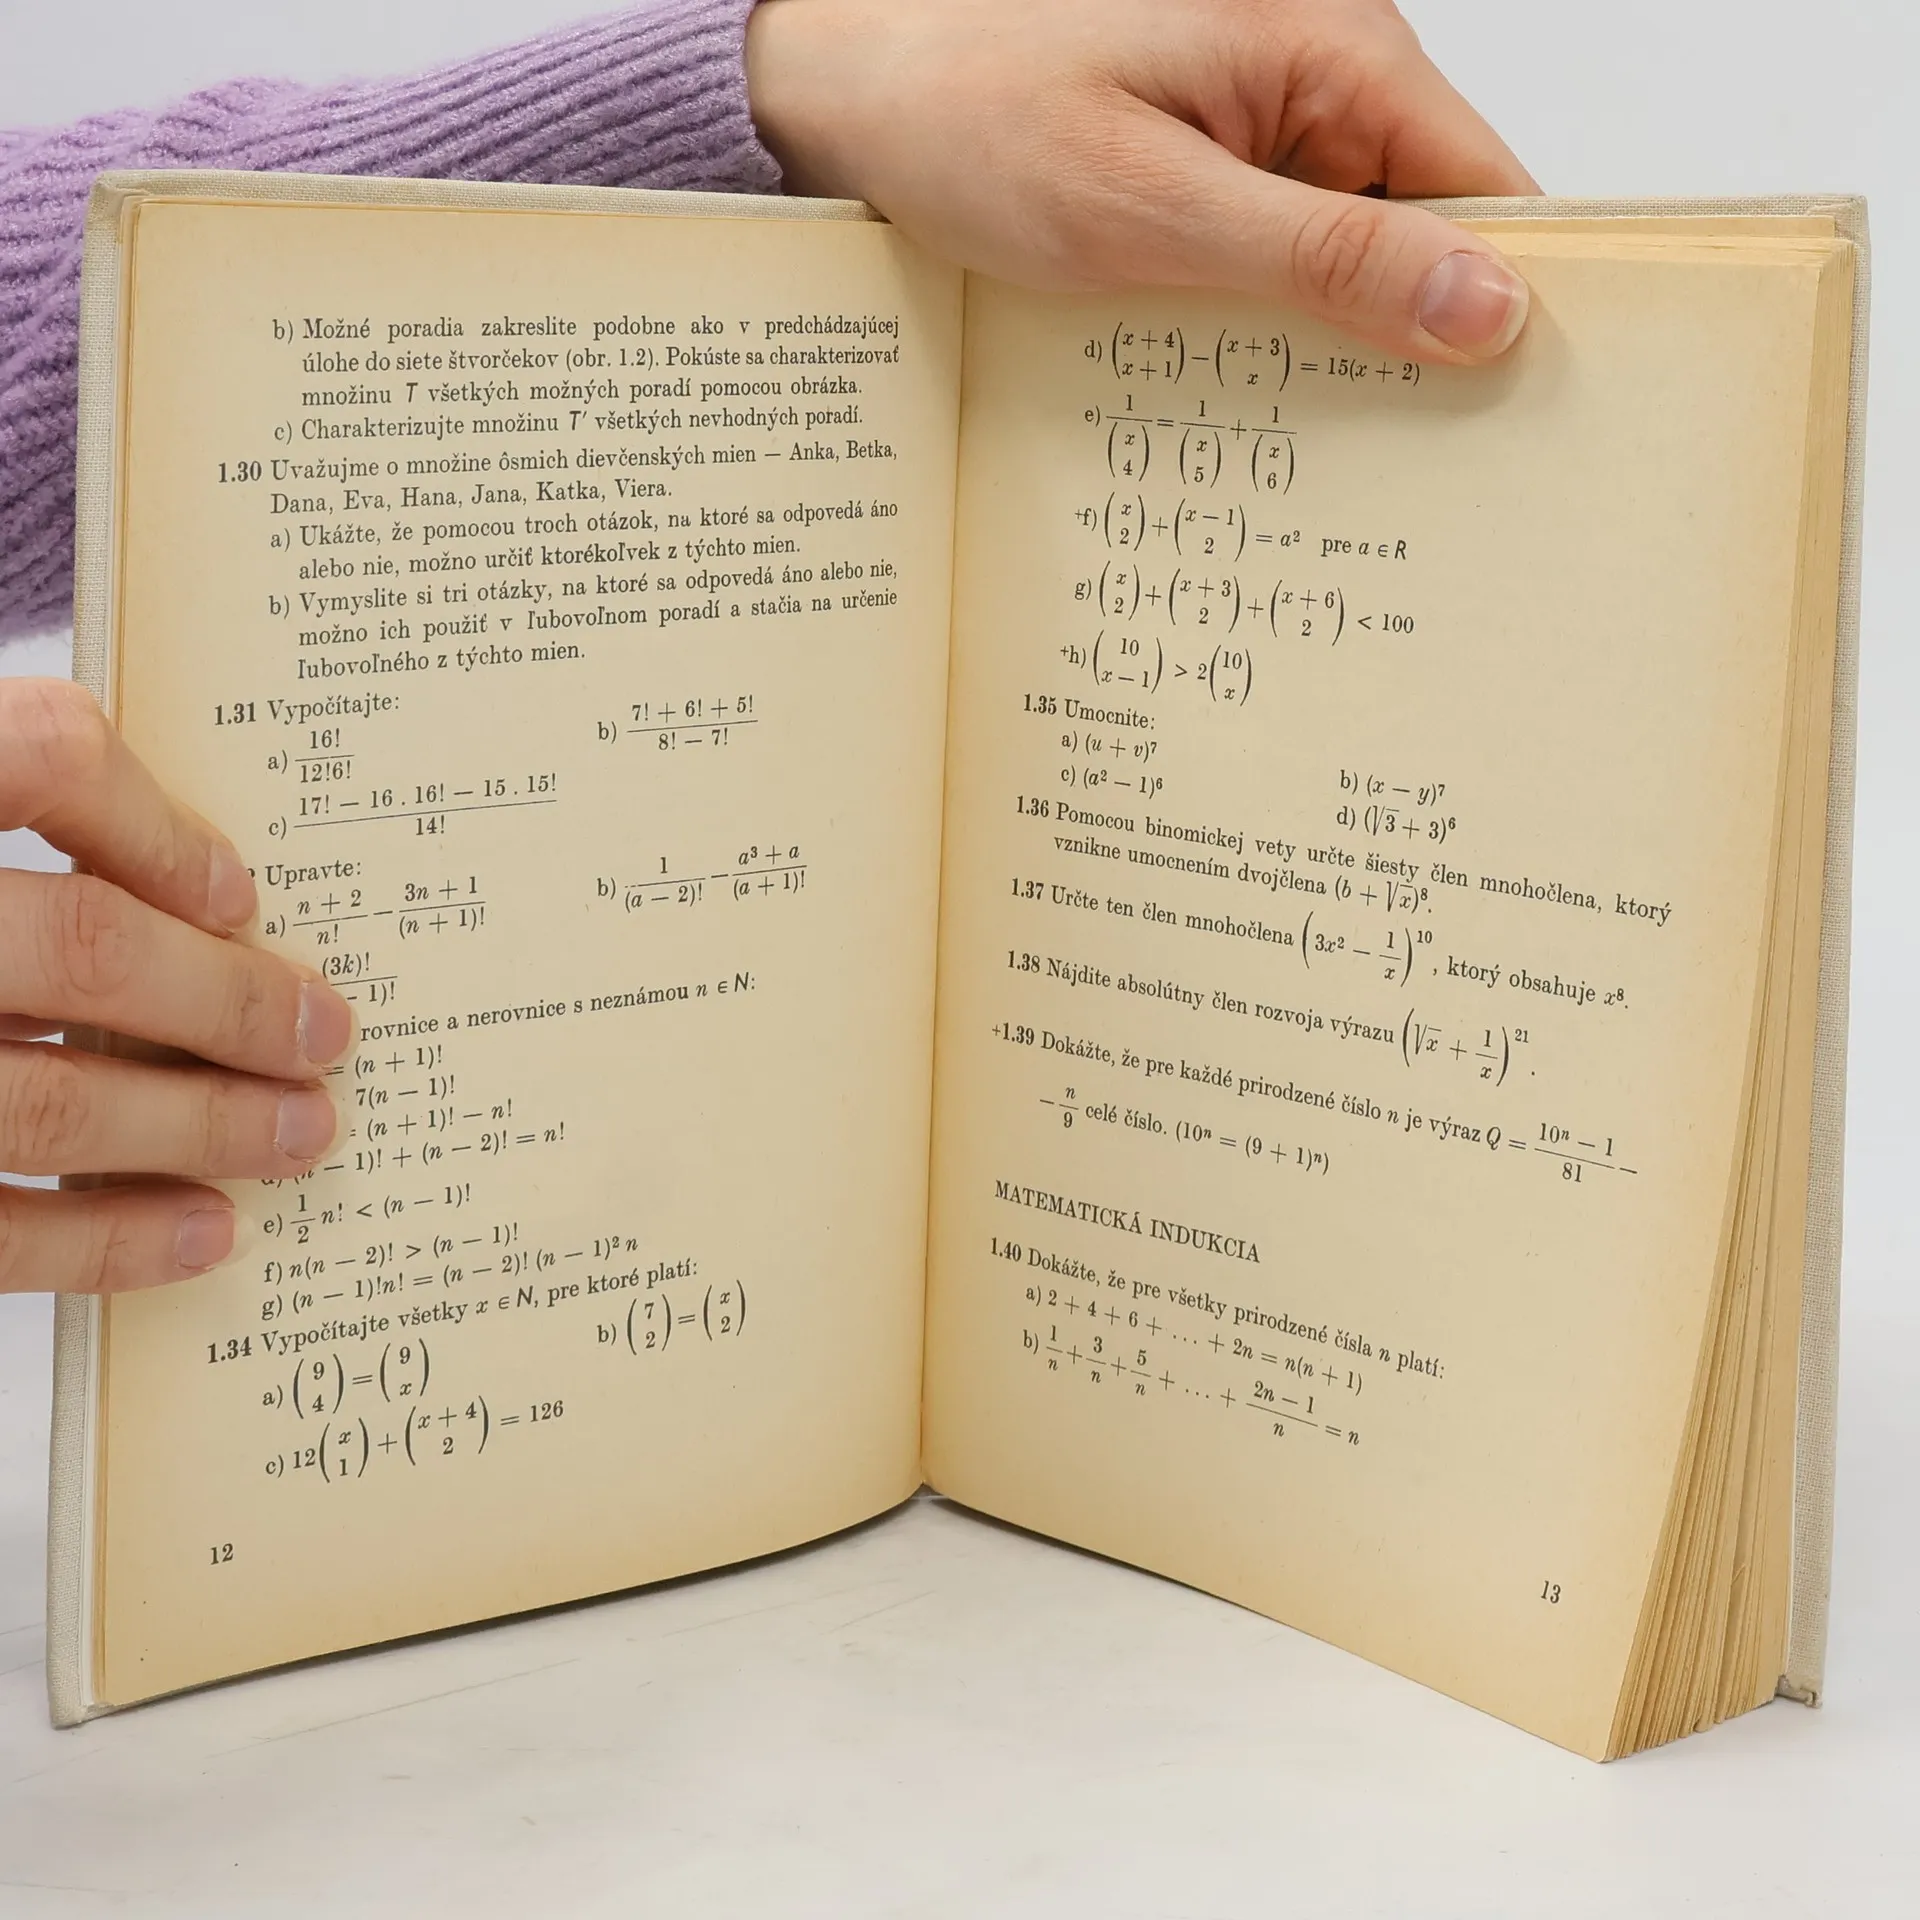 b) Možné poradia zakreslite podobne ako v predchádzajúcej
úlohe do siete štvorčekov (obr. 1.2). Pokúste sa charakterizovať
množinu T všetkých možných poradí pomocou obrázka.
c) Charakterizujte množinu T′ všetkých nevhodných poradí.
1.30 Uvažujme o množine ôsmich dievčenských mien — Anka, Betka,
Dana, Eva, Hana, Jana, Katka, Viera.
a) Ukážte, že pomocou troch otázok, na ktoré sa odpovedá áno
alebo nie, možno určiť ktorékoľvek z týchto mien.
b) Vymyslite si tri otázky, na ktoré sa odpovedá áno alebo nie,
možno ich použiť v ľubovoľnom poradí a stačia na určenie
ľubovoľného z týchto mien.
1.31 Vypočítajte:
a) 16! / 12!6! b) (7! + 6! + 5!) / (8! — 7!)
c) (17! — 16 . 16! — 15 . 15!) / 14!
Upravte:
a) (n + 2) / n! — (3n + 1) / (n + 1)! b) 1 / (a — 2)! — (a³ + a) / (a + 1)!
(3k)! / — 1)!
rovnice a nerovnice s neznámou n ∈ N:
= (n + 1)!
7(n — 1)!
= (n + 1)! — n!
— 1)! + (n — 2)! = n!
e) 1/2 n! < (n — 1)!
f) n(n — 2)! > (n — 1)!
g) (n — 1)!n! = (n — 2)! (n — 1)² n
1.34 Vypočítajte všetky x ∈ N, pre ktoré platí:
a) (9 4) = (9 x) b) (7 2) = (x 2)
c) 12(x 1) + (x + 4 2) = 126
12
d) (x + 4 x + 1) — (x + 3 x) = 15(x + 2)
e) 1/(x 4) = 1/(x 5) + 1/(x 6)
+f) (x 2) + (x — 1 2) = a² pre a ∈ R
g) (x 2) + (x + 3 2) + (x + 6 2) < 100
+h) (10 x — 1) > 2(10 x)
1.35 Umocnite:
a) (u + v)⁷ b) (x — y)⁷
c) (a² — 1)⁶ d) (√3 + 3)⁶
1.36 Pomocou binomickej vety určte šiesty člen mnohočlena, ktorý
vznikne umocnením dvojčlena (b + √x)⁸.
1.37 Určte ten člen mnohočlena (3x² — 1/x)¹⁰, ktorý obsahuje x⁸.
1.38 Nájdite absolútny člen rozvoja výrazu (√x + 1/x)²¹.
+1.39 Dokážte, že pre každé prirodzené číslo n je výraz Q = (10ⁿ — 1)/81 —
— n/9 celé číslo. (10ⁿ = (9 + 1)ⁿ)
MATEMATICKÁ INDUKCIA
1.40 Dokážte, že pre všetky prirodzené čísla n platí:
a) 2 + 4 + 6 + ... + 2n = n(n + 1)
b) 1/n + 3/n + 5/n + ... + (2n — 1)/n = n
13